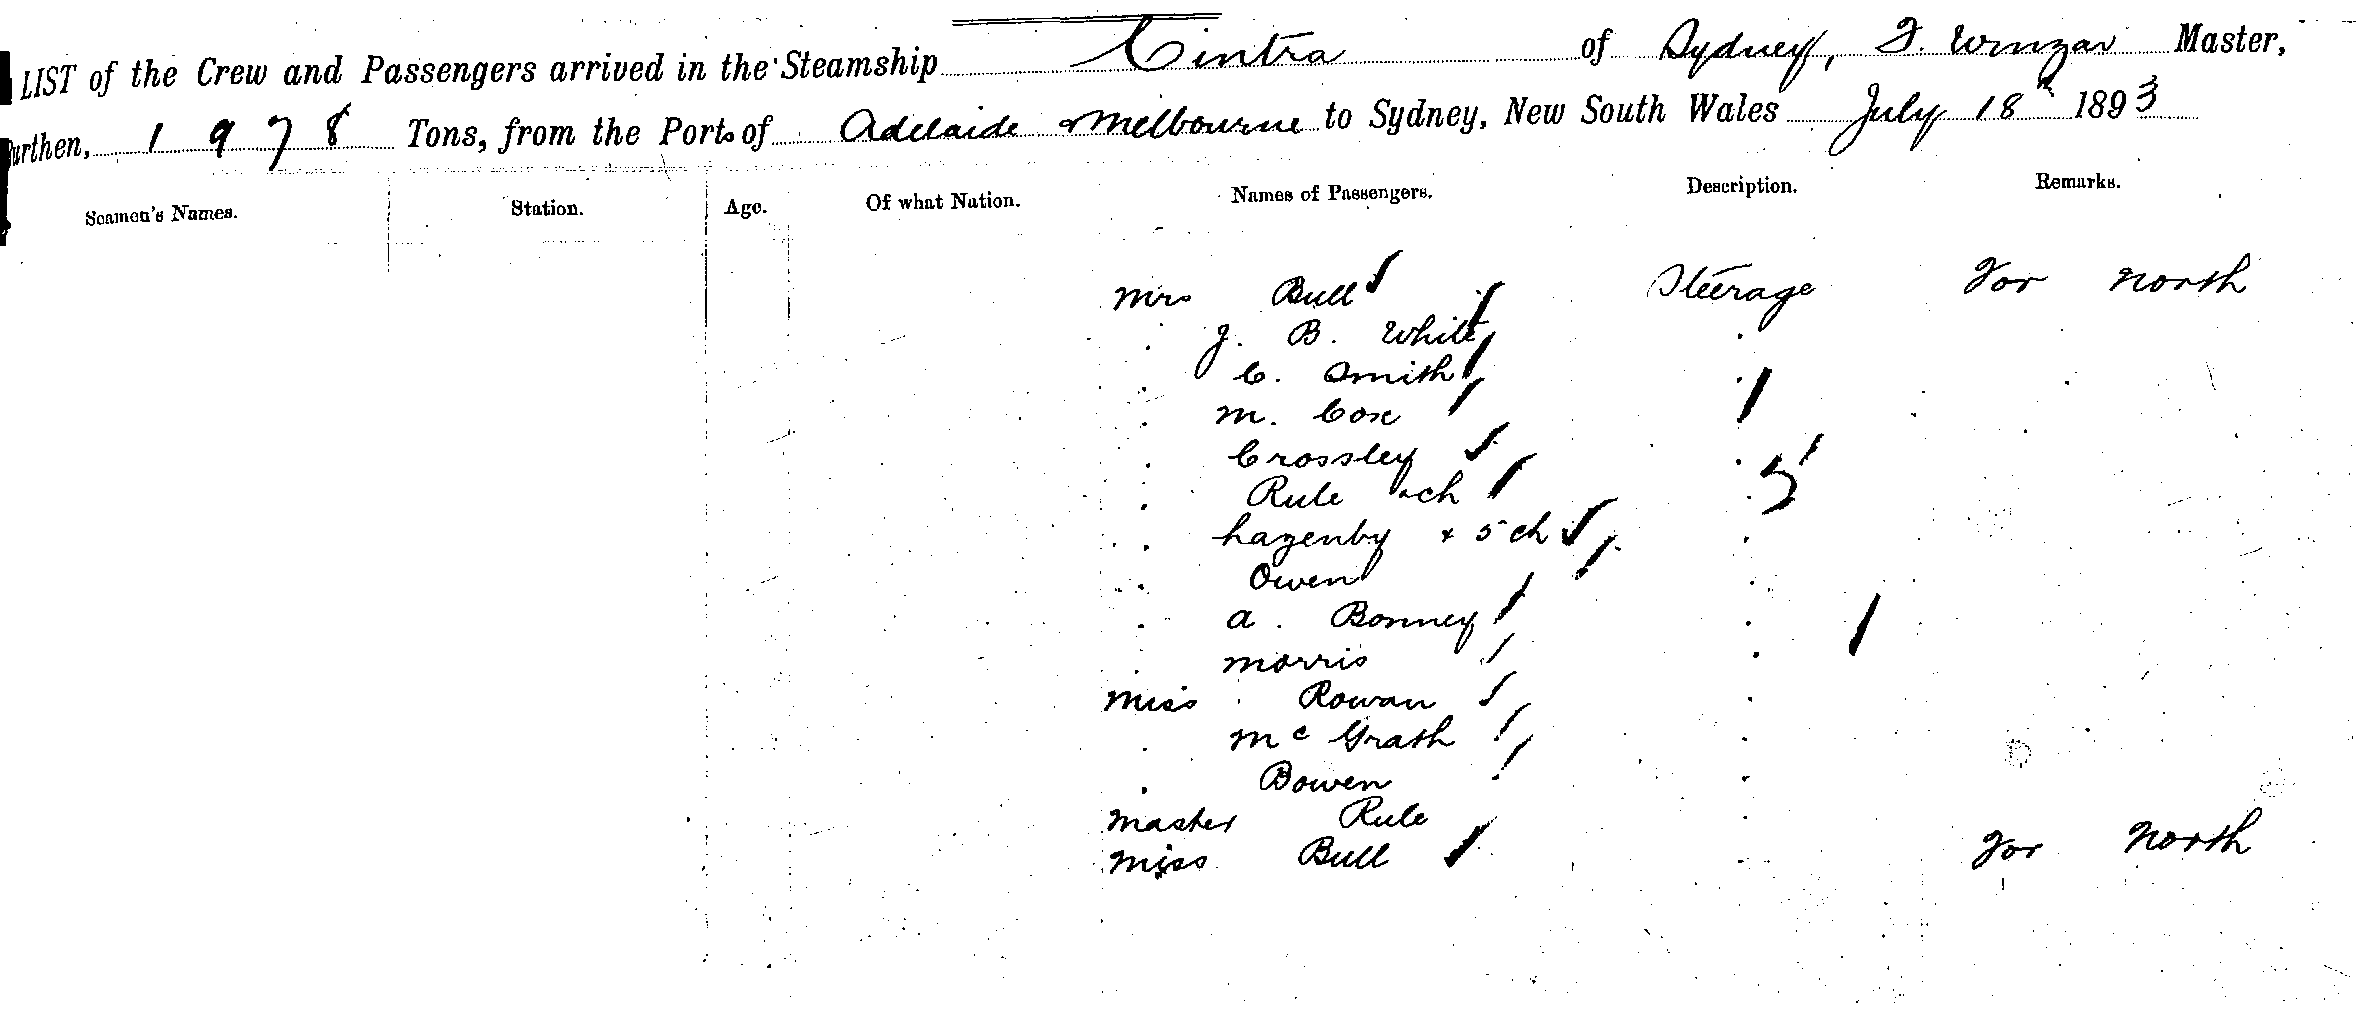 LIST of the Crew and Passengers arrived in the Steamship Cintra of Sydney, F. Winzar Master,
Burthen, 1978 Tons, from the Ports of Adelaide & Melbourne to Sydney, New South Wales July 18th 1893
Seamen's Names. Station. Age. Of what Nation. Names of Passengers. Description. Remarks.
Mrs Bull Steerage For North
. J. B. White .
. C. Smith .
. M. Cox
. Crossley .
. Rule & ch .
. Lazenby & 5 ch .
. Owen .
. A. Bonney .
. Morris .
Miss Rowan .
. Mc Grath .
. Bowen .
Master Rule .
Miss Bull . For North